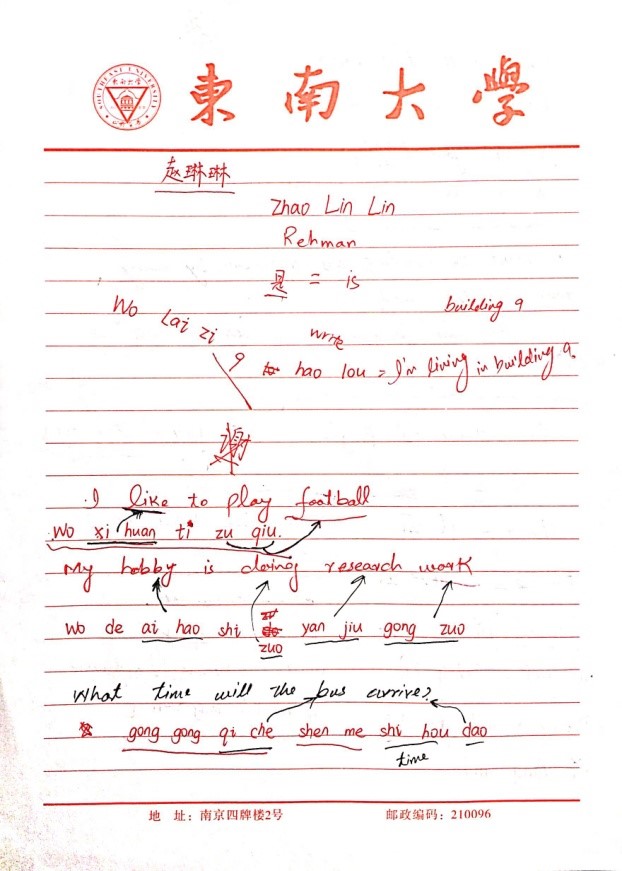 東南大學
赵琳琳
Zhao Lin Lin
Rehman
是 = is
building 9
Wo Lai zi
write
9 hao lou = I'm living in building 9.
谢
I like to play football
Wo xi huan ti zu qiu.
My hobby is doing research work
Wo de ai hao shi zuo yan jiu gong zuo
What time will the bus arrive?
gong gong qi che shen me shi hou dao
time
地 址：南京四牌楼2号 邮政编码：210096